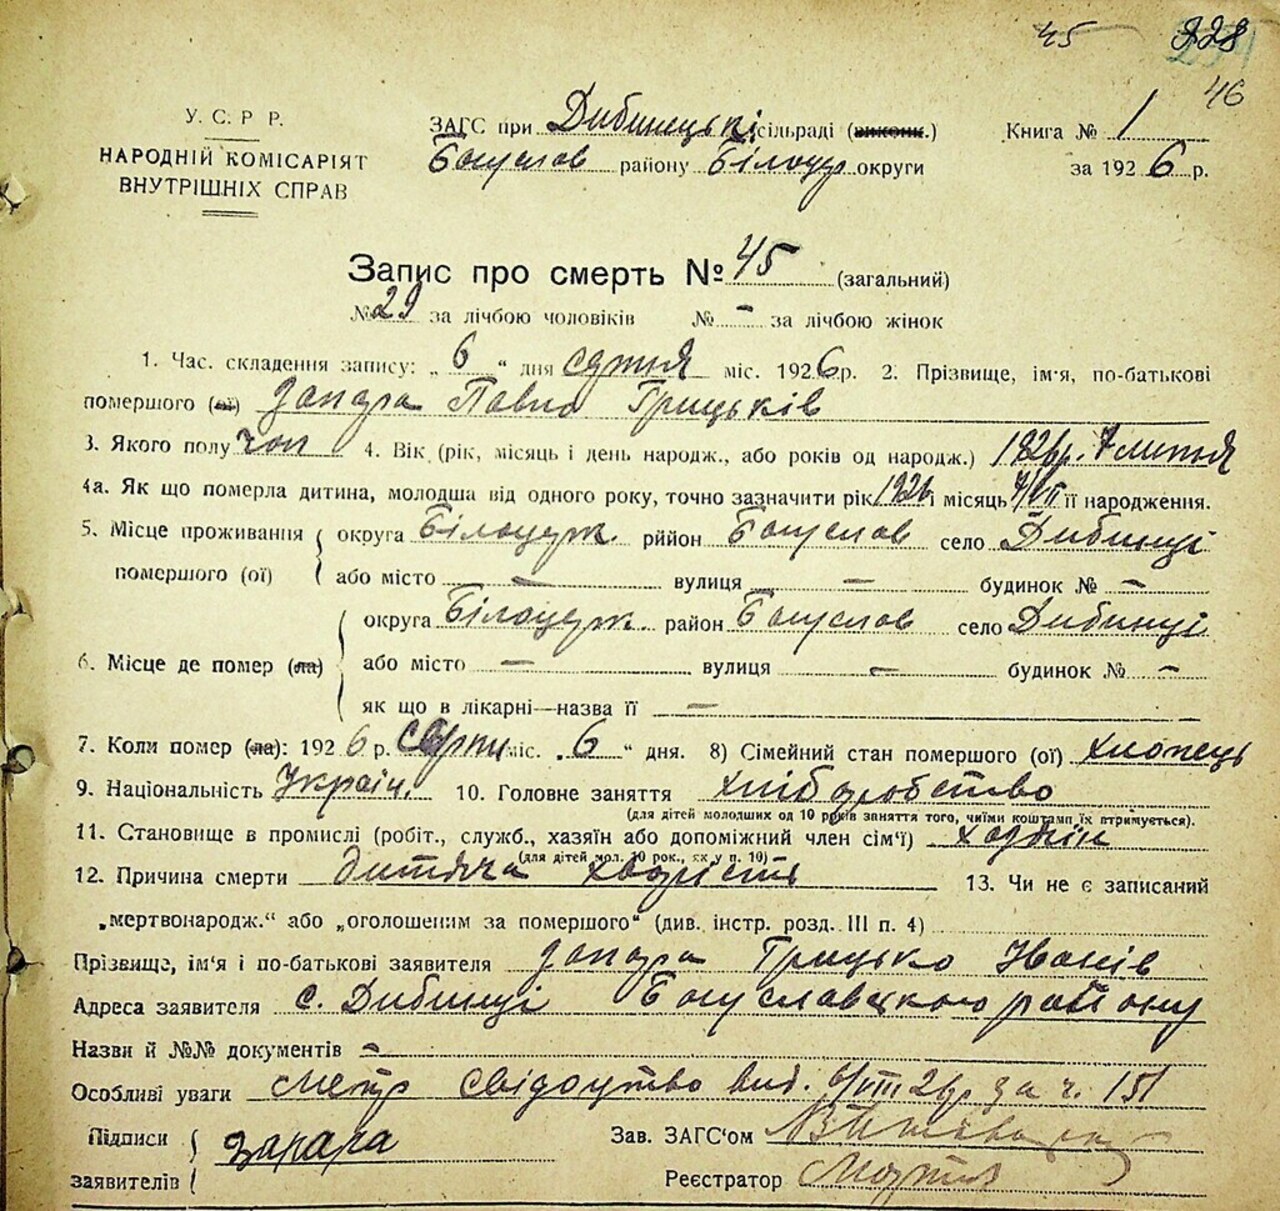 45 328
46
У. С. Р Р.
НАРОДНІЙ КОМІСАРІЯТ
ВНУТРІШНІХ СПРАВ
ЗАГС при Дибинецькі сільраді (виконк.)
Богуслов району Білоцер округи
Книга № 1
за 1926 р.
Запис про смерть № 45 (загальний)
№ 29 за лічбою чоловіків № - за лічбою жінок
1. Час. складення запису: „ 6 “ дня серпня міс. 1926 р. 2. Прізвище, ім'я, по-батькові
помершого (ої) Запара Павло Грицьків
3. Якого полу чол 4. Вік (рік, місяць і день народж., або років од народж.) 1926 р. 7 липня
4а. Як що померла дитина, молодша від одного року, точно зазначити рік 1926 і місяць 7/VII її народження.
5. Місце проживання округа Білоцерк. рййон Богуслов село Дибинці
помершого (ої) або місто — вулиця — будинок № —
округа Білоцерк. район Богуслов село Дибинці
6. Місце де помер (ла) або місто — вулиця — будинок № —
як що в лікарні—назва її —
7. Коли помер (ла): 1926 р. серпн міс. „ 6 “ дня. 8) Сімейний стан помершого (ої) хлопець
9. Національність Україн. 10. Головне заняття хліборобство
(для дітей молодших од 10 років заняття того, чиїми коштами їх втримується).
11. Становище в промислі (робіт., служб., хазяїн або допоміжний член сім'ї) хазяїн
(для дітей мол. 10 рок., як у п. 10)
12. Причина смерти Дитяча хворість 13. Чи не є записаний
„мертвонародж.“ або „оголошеним за помершого“ (див. інстр. розд. III п. 4)
Прізвище, ім'я і по-батькові заявителя Запара Грицько Іванів
Адреса заявителя с. Дибинці Богуславського району
Назви й №№ документів —
Особливі уваги Метр свідоцтво вид. 6/VIII 26 р за ч. 151
Підписи Запара Зав. ЗАГС'ом
заявителів Реєстратор